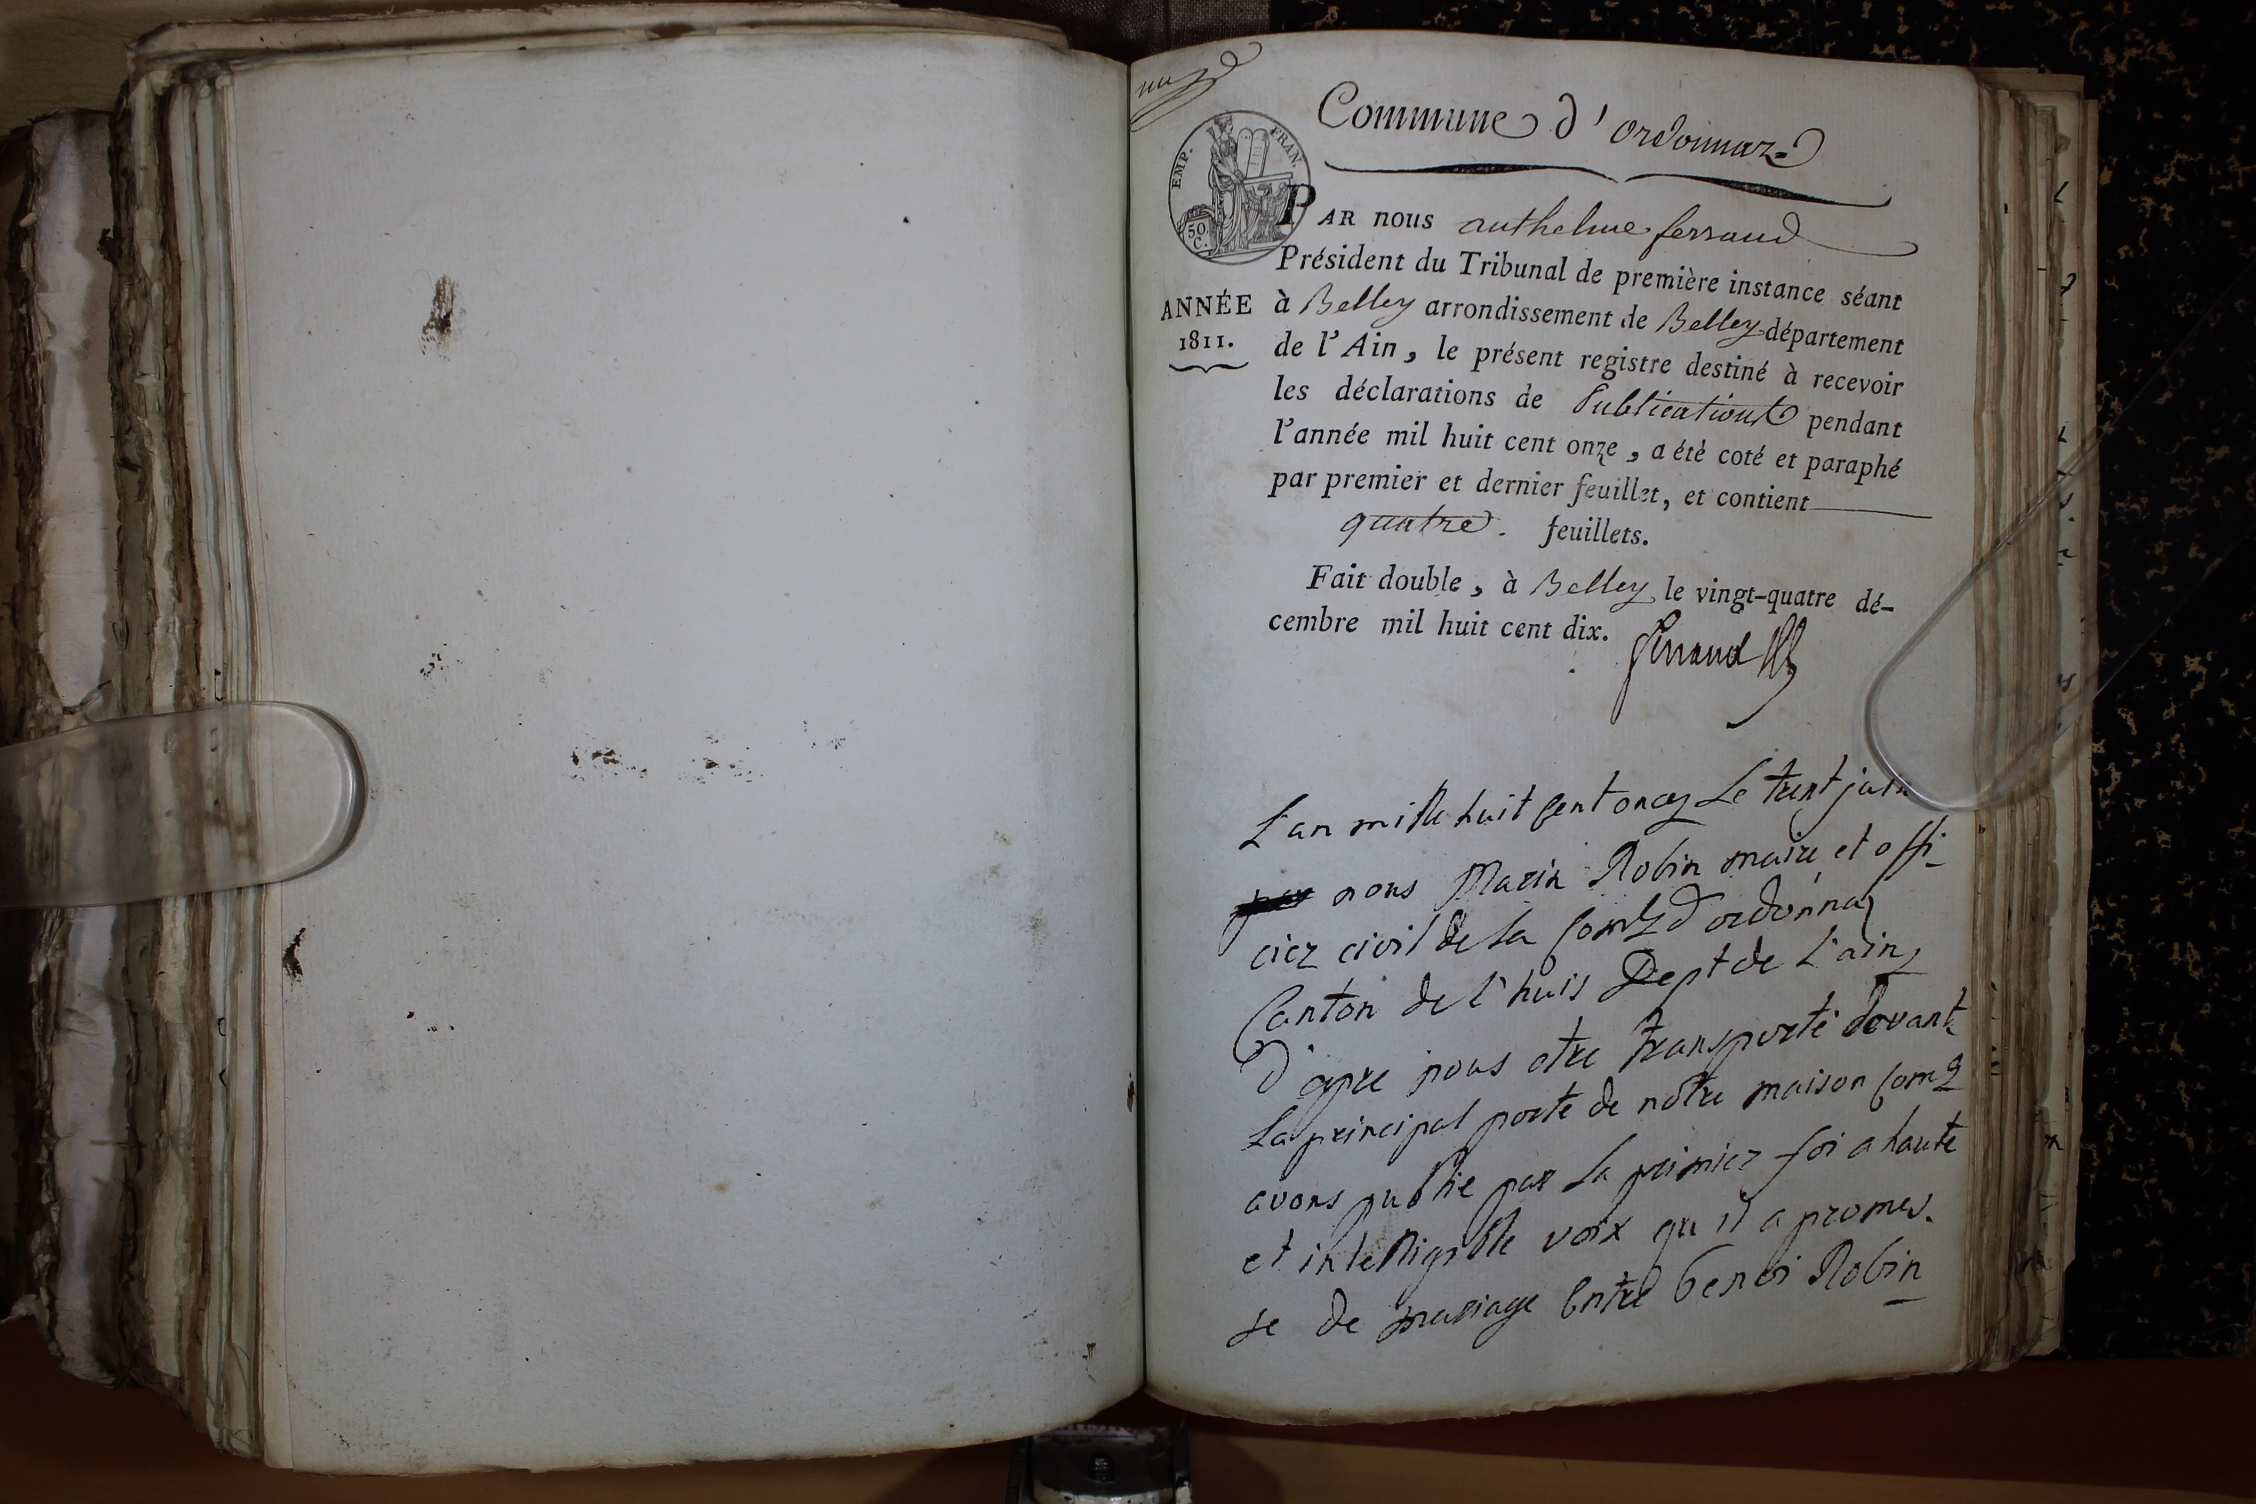 Commune d'ordonnaz
EMP. FRAN.
50.
C.
PAR nous anthelme ferrand
Président du Tribunal de première instance séant
ANNÉE
1811.
à Belley arrondissement de Belley département
de l'Ain, le présent registre destiné à recevoir
les déclarations de Publications pendant
l'année mil huit cent onze, a été coté et paraphé
par premier et dernier feuillet, et contient
quatre. feuillets.
Fait double, à Belley le vingt-quatre dé-
cembre mil huit cent dix.
ferrand
L'an mille huit cent onze Le trent juin
nous Marin Robin maire et offi-
cier civil de la d'ordonnaz
Canton de l'huis Dept de L'ain
D'apre nous etre transporté devant
La principal porte de notre maison
avons publie par la primier foi a haute
et intelligible voix qu il a promes-
se de mariage Entre benoi Robin